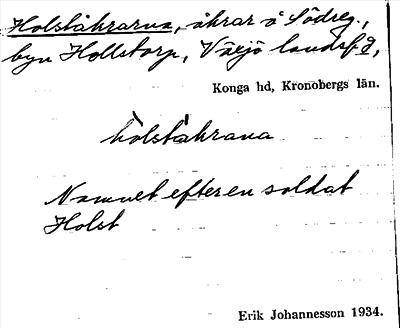 Holståkrarna, åkrar å Södreg.,
byn Hollstorp, Växjö landsf-d,
Konga hd, Kronobergs län.
hòlståkrana
Namnet efter en soldat
Holst
Erik Johannesson 1934.